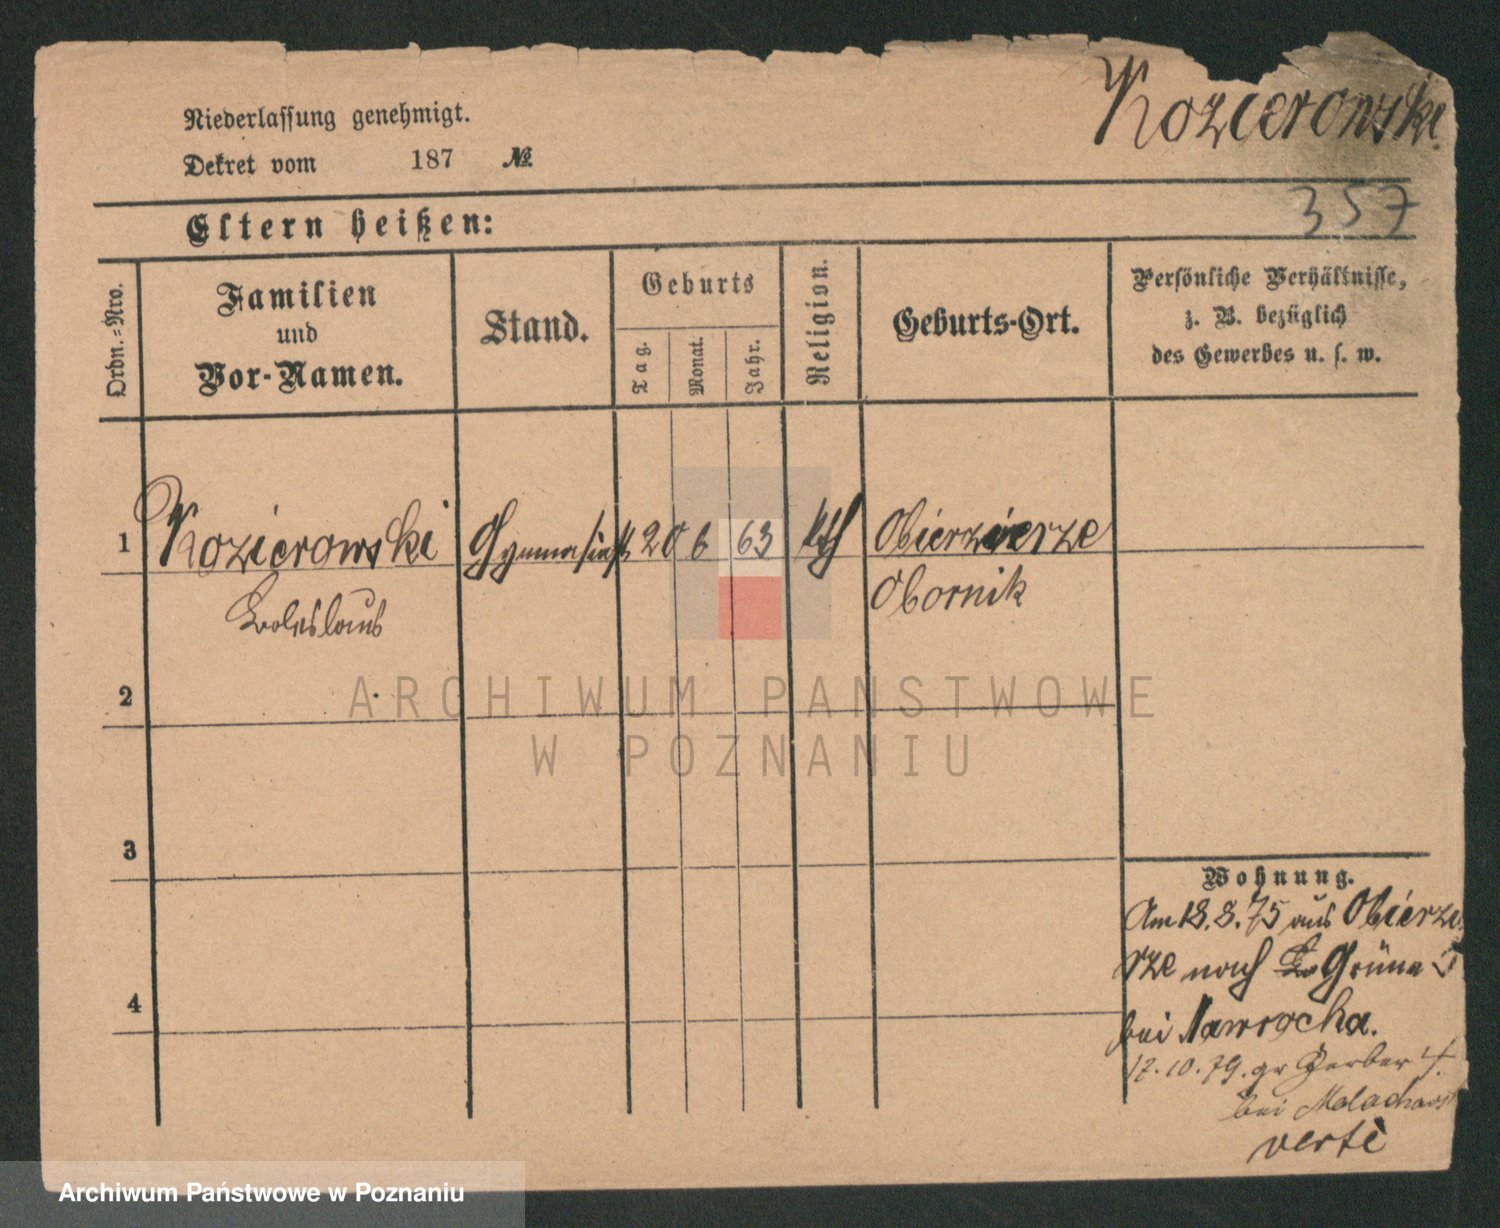 Kozierowski.
Niederlassung genehmigt.
Dekret vom 187 №
357
Eltern heißen:
Ordn.-Nro.
Familien
und
Vor-Namen.
Stand.
Geburts
Tag.
Monat.
Jahr.
Religion.
Geburts-Ort.
Persönliche Verhältnisse,
z. B. bezüglich
des Gewerbes u. s. w.
1 Kozierowski Gymnasiast 20 6 63 kth Obierzierze
Boleslaus Obornik
2
3
Wohnung.
Am 18.8.75 aus Obierzie
rze nach Grüne
4
bei Nawrocka.
17.10.79. gr Gerber 4.
bei Malachows
verte
ARCHIWUM PAŃSTWOWE
W POZNANIU
Archiwum Państwowe w Poznaniu